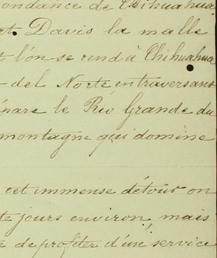 pondance de Chihuahua
t. Davis la malle
l'on se rend à Chihuahua
del Norte en traversant
pare le Rio Grande du
montagne qui domine
cet immense détour on
jours environ, mais
de profiter d'un service